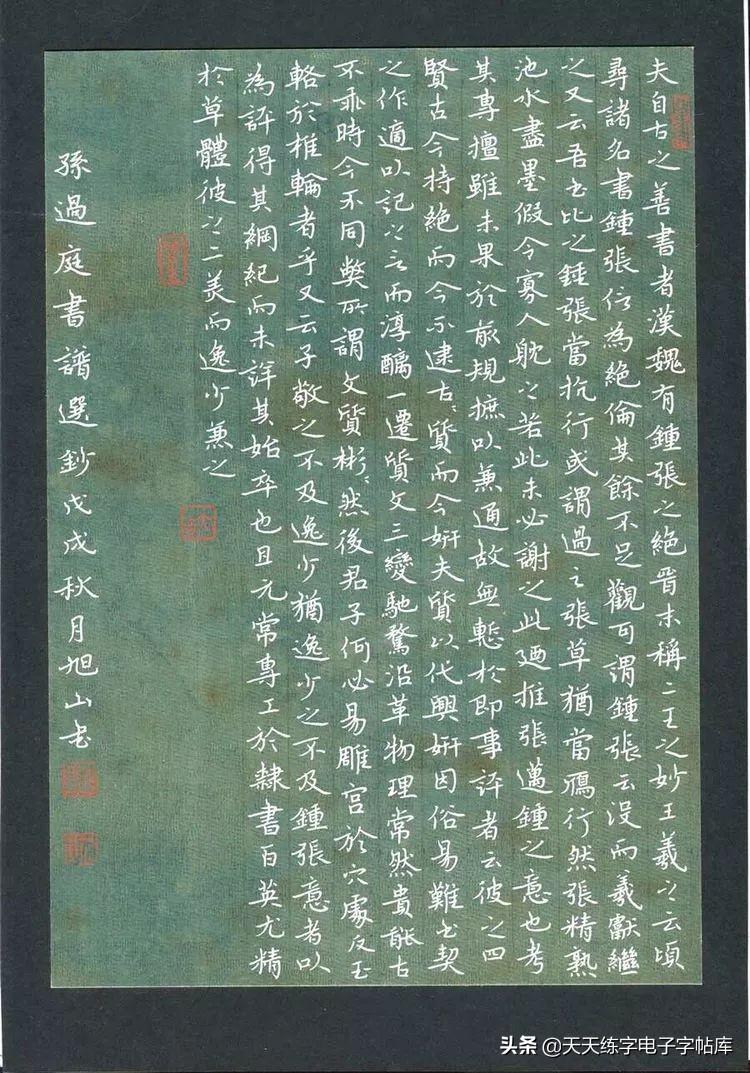 夫自古之善書者漢魏有鍾張之絕晉末稱二王之妙王羲之云頃
尋諸名書鍾張信為絕倫其餘不足觀可謂鍾張云沒而羲獻繼
之又云吾書比之鍾張當抗行或謂過之張草猶當鴈行然張精熟
池水盡墨假令寡人躭之若此未必謝之此廼推張邁鍾之意也考
其專擅雖未果於前規摭以兼通故無慙於即事評者云彼之四
賢古今特絕而今不逮古〻質而今妍夫質以代興妍因俗易雖書契
之作適以記之言而淳醨一遷質文三變馳騖沿革物理常然貴能古
不乖時今不同弊所謂文質彬〻然後君子何必易雕宮於穴處反玉
輅於椎輪者乎又云子敬之不及逸少猶逸少之不及鍾張意者以
為評得其綱紀而未詳其始卒也且元常專工於隸書百英尤精
於草體彼之二美而逸少兼之
孫過庭書譜選鈔戊戌秋月旭山書
头条 @天天练字电子字帖库